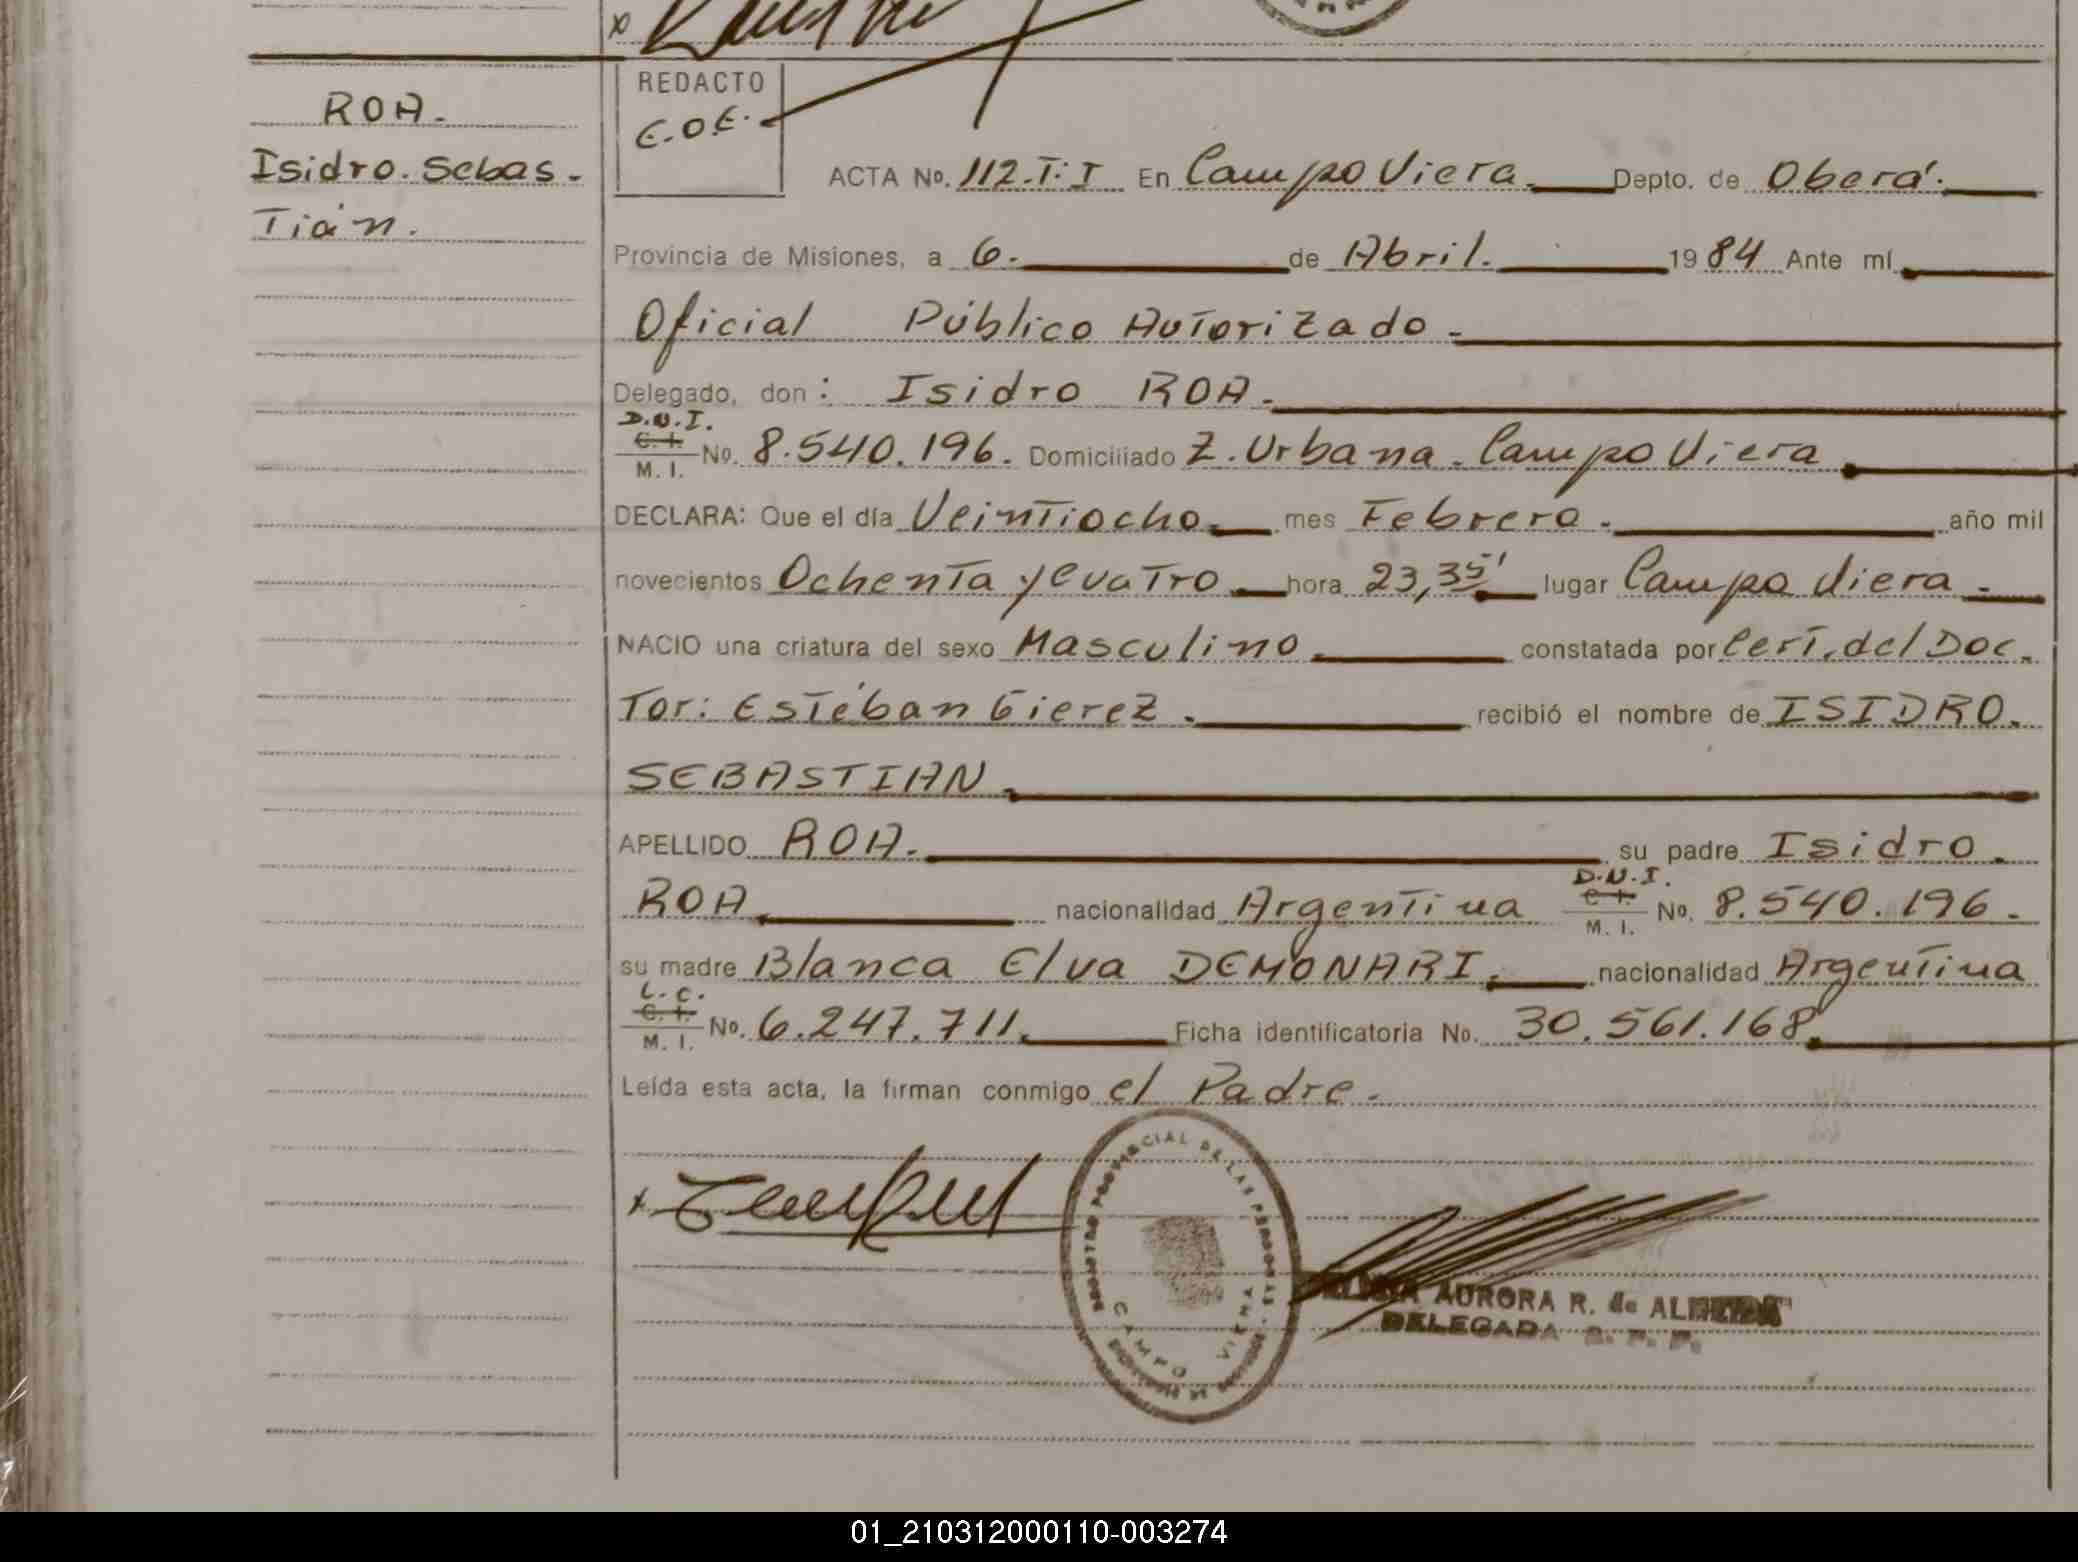 REDACTO
E.O.E.
ROA.
Isidro. Sebas-
Tián.
ACTA No. 112.T.I En Campo Viera. Depto. de Oberá.
Provincia de Misiones, a 6. de Abril. 1984 Ante mí
Oficial Público Autorizado.
Delegado, don: Isidro ROA.
D.N.I.
C. I.
M. I. No. 8.540.196. Domiciliado Z. Urbana. Campo Viera
DECLARA: Que el día Veintiocho. mes Febrero. año mil
novecientos Ochenta y Cuatro. hora 23,35' lugar Campo Viera.
NACIO una criatura del sexo Masculino. constatada por Cert. del Doc.
Tor: Estéban Gierez. recibió el nombre de ISIDRO.
SEBASTIAN.
APELLIDO ROA. su padre Isidro.
D.N.I.
ROA nacionalidad Argentina C. I. No. 8.540.196.
M. I.
su madre Blanca Elva DEMONARI. nacionalidad Argentina
L. C.
C. I. No. 6.247.711. Ficha identificatoria No. 30.561.168
M. I.
Leída esta acta, la firman conmigo el Padre.
x
PROVINCIAL DE LAS PERSONAS
CAMPO VIERA
AURORA R. de
DELEGADA R. P. P.
01_210312000110-003274